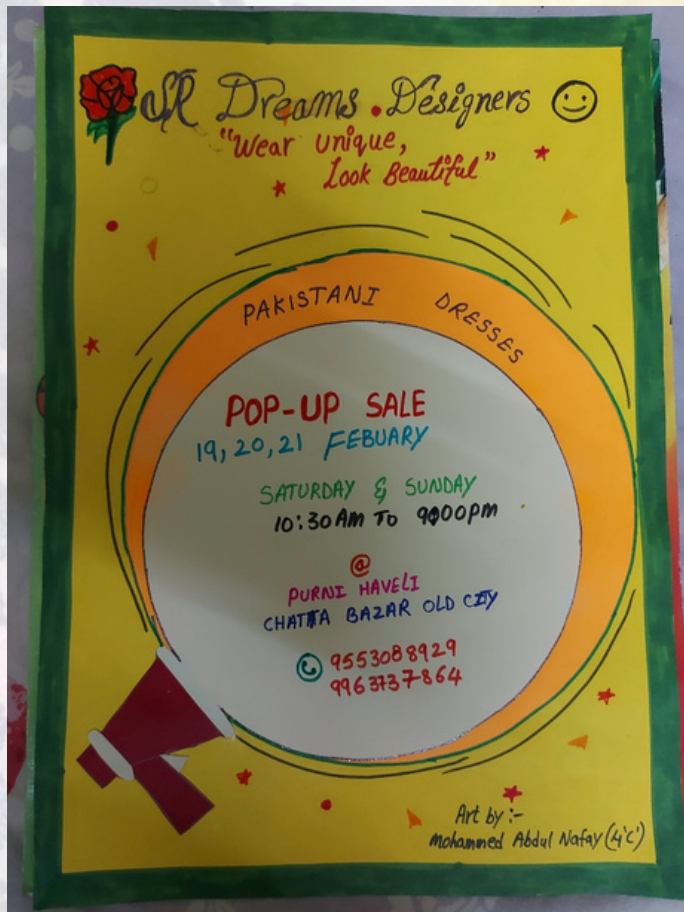 SR Dreams Designers
"Wear Unique,
Look Beautiful"
PAKISTANI DRESSES
POP-UP SALE
19, 20, 21 FEBUARY
SATURDAY & SUNDAY
10:30 AM TO 9:00 PM
@
PURNI HAVELI
CHATTA BAZAR OLD CITY
9553088929
9963737864
Art by :-
Mohammed Abdul Nafay (4'C')